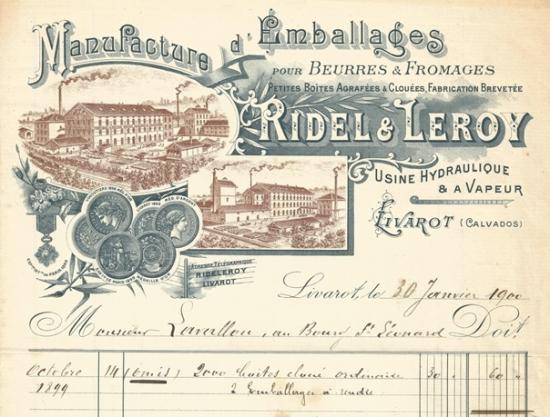 Manufacture d'Emballages
POUR BEURRES & FROMAGES
PETITES BOÎTES AGRAFÉES & CLOUÉES, FABRICATION BREVETÉE
RIDEL & LEROY
USINE HYDRAULIQUE
& A VAPEUR
LIVAROT (CALVADOS)
ADRESSE TÉLÉGRAPHIQUE
RIDELEROY
LIVAROT
Livarot, le 30 Janvier 1900
Monsieur au Bourg St Léonard Doit
Octobre 14 (6 mis) 2000 boites clané ordinaire 30 " 60 "
1899 2 Emballages à rendre